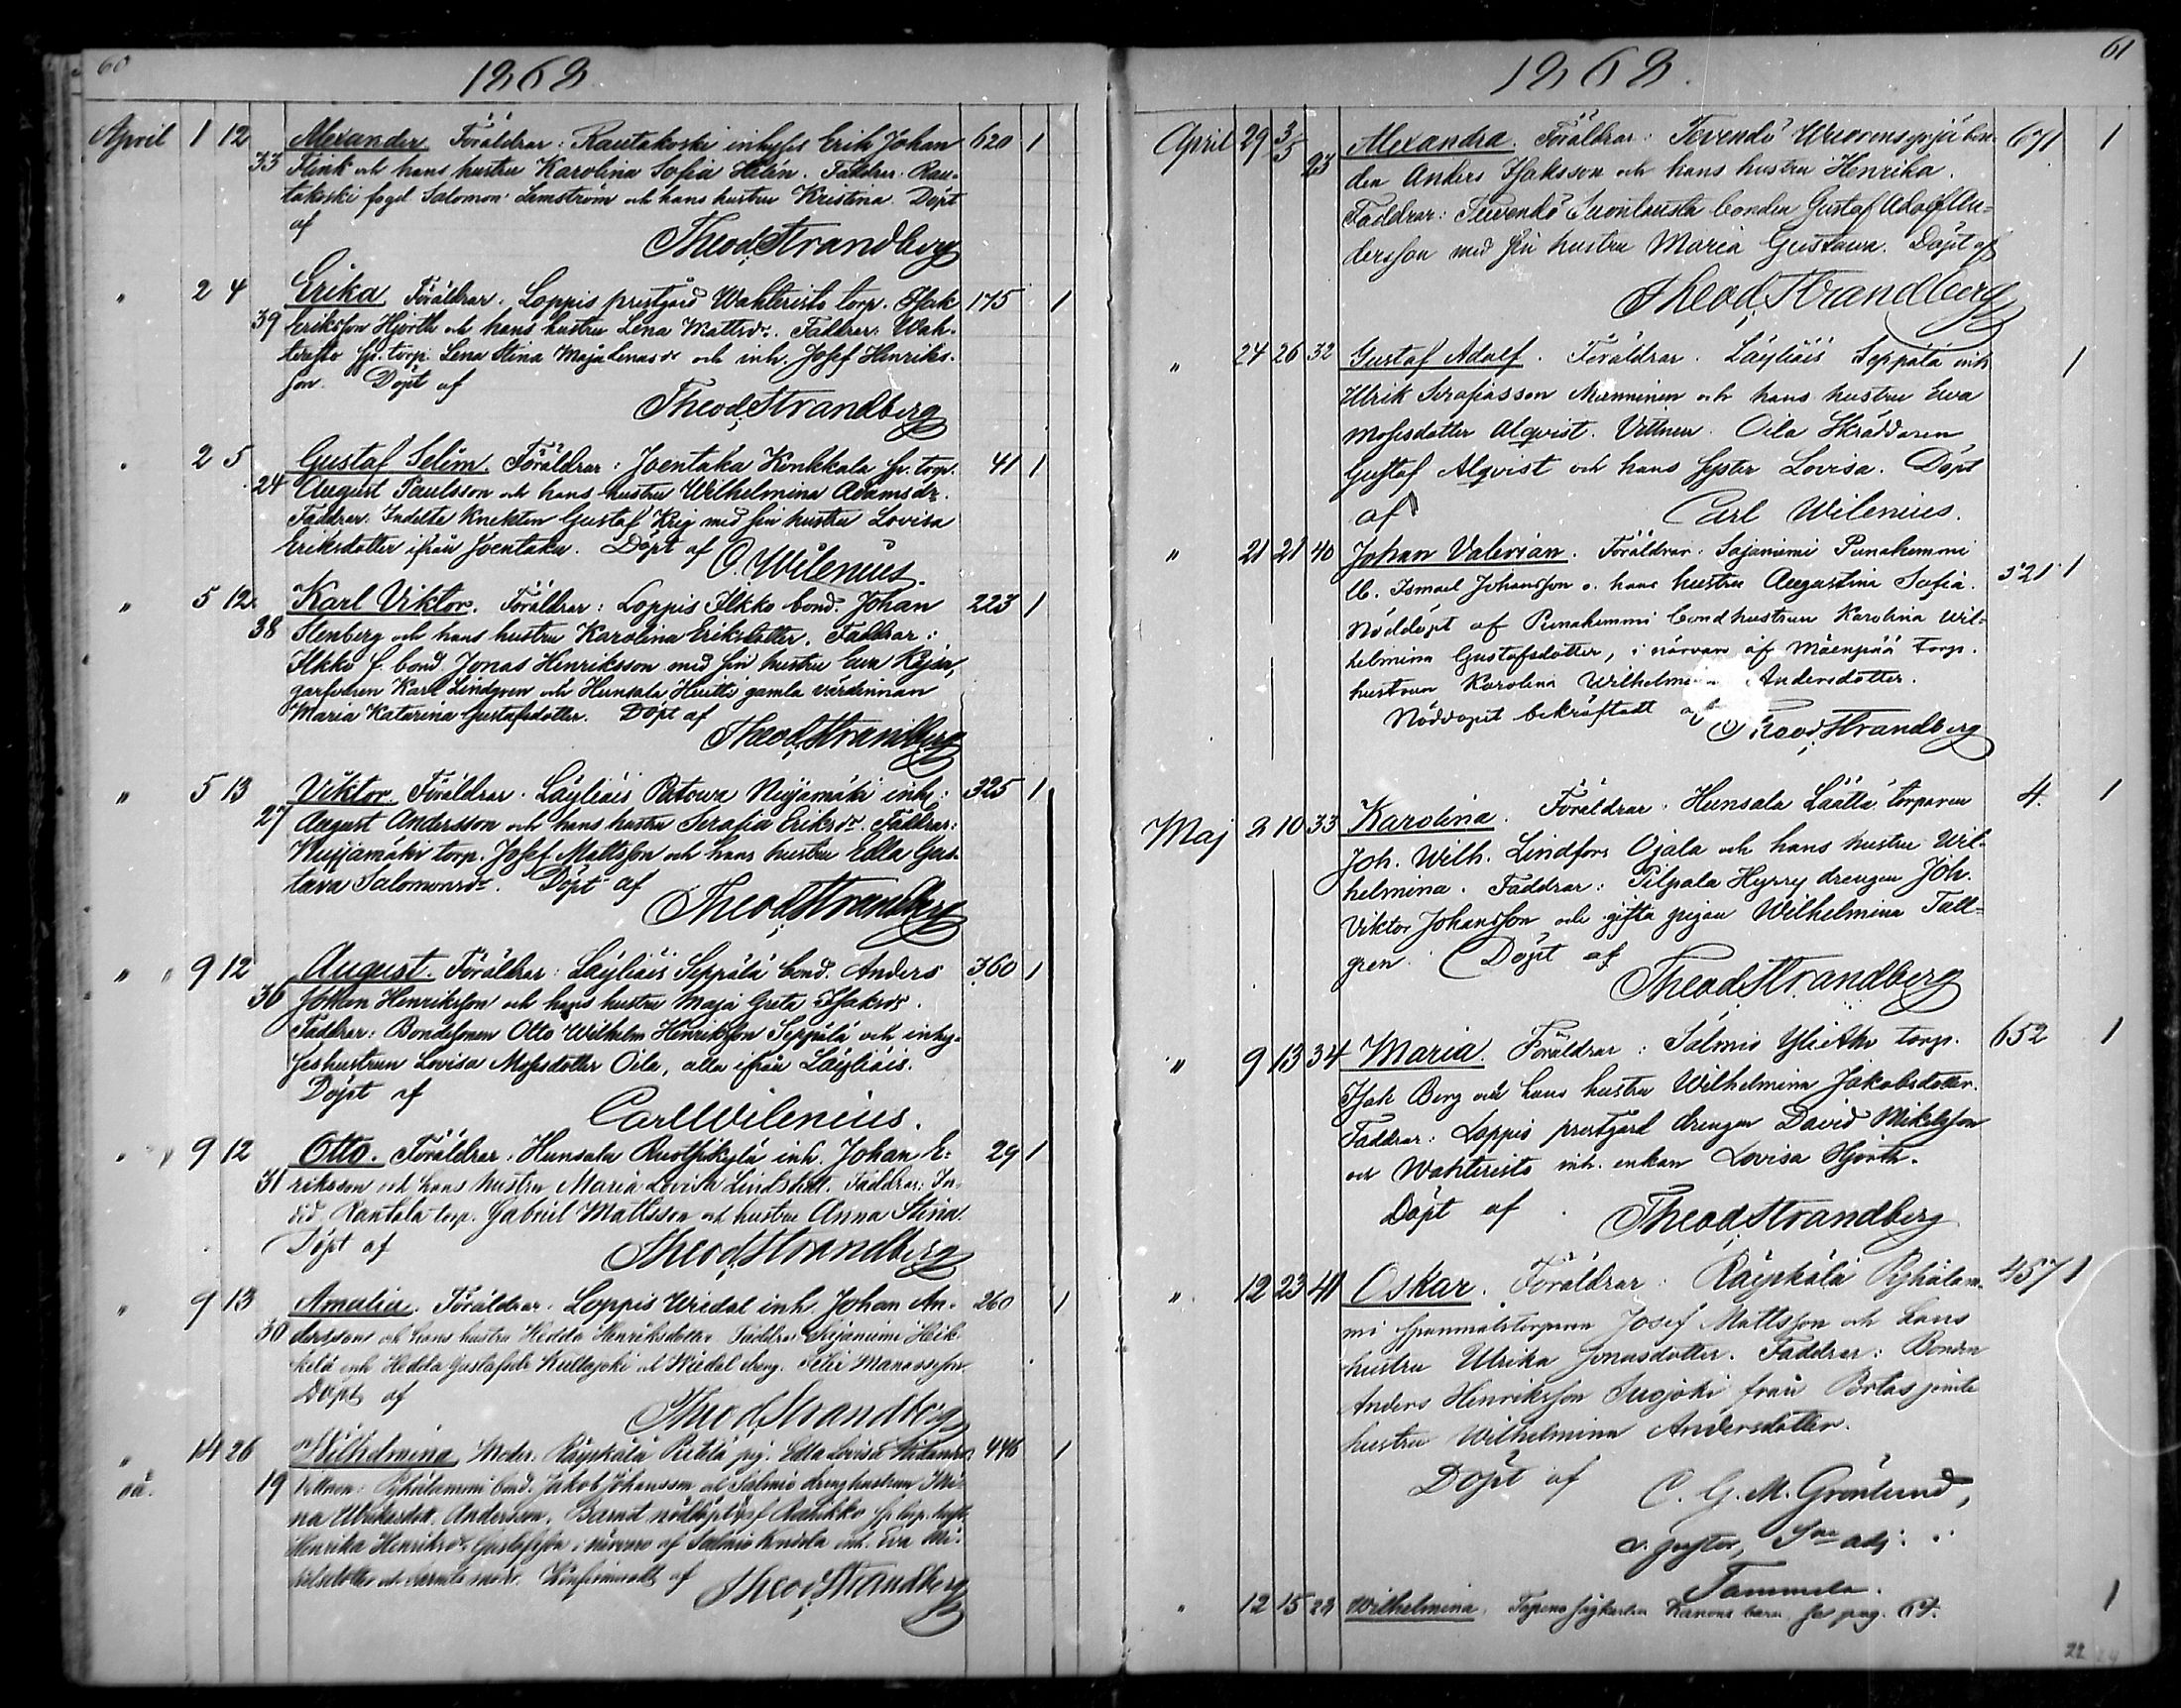 60
1868
April 1 12 Alexander Föräldrar: Rautakoski inhyses Erik Johan 620 1
33 Flink och hans hustru Karolina Sofia Helén. Faddrar. Rau-
takoski fogd Salomon Lemström och hans hustru Kristina. Döpt
af
Theod. Strandberg
" 2 4 Erika Föräldrar. Loppis prestgård Wahteristo torp. Isak 175 1
39 Eriksson Hjorth och hans hustru Lena Mattsdr. Faddrar: Wah-
teristo sp. torp. Lena Stina Maja Lenasdr och inh. Josef Henriks-
son. Döpt af
Theod. Strandberg
" 2 5 Gustaf Selim. Föräldrar: Joentaka Konkkala sp. torp. 41 1
24 August Paulsson och hans hustru Wilhelmina Adamsdr.
Faddrar. Indelte Knekten Gustaf Krig med sin hustru Lovisa
Eriksdotter ifrån Joentaka. Döpt af C. Wilenius.
" 5 12 Karl Viktor. Föräldrar: Loppis Ilkko bond. Johan 223 1
38 Stenberg och hans hustru Karolina Eriksdotter. Faddrar:
Ilkko f. bond. Jonas Henriksson med sin hustru Eva Kajsa,
garfvaren Karl Lindgren och Hunsala Huitti gamla värdinnan
Maria Katarina Gustafsdotter. Döpt af
Theod. Strandberg
" 5 13 Viktor. Föräldrar. Läyliäis Patowa Nuijamäki inhy: 325 1
27 August Andersson och hans hustru Serafia Eriksdr. Faddrar:
Nuijamäki torp. Josef Mattsson och hans hustru Edla Gus-
tava Salomonsdr. Döpt af
Theod. Strandberg
" " 9 12 August. Föräldrar: Läyliäis Seppälä bond. Anders 360 1
36 Johan Henriksson och hans hustru Maja Greta Isaksdr.
Faddrar: Bondesonen Otto Wilhelm Henriksson Seppälä och inhy-
seshustrun Lovisa Mosisdotter Oila, alla ifrån Läyliäis.
Döpt af
Carl Wilenius.
" " 9 12 Otto. Föräldrar. Hunsala Ruotsikylä inh. Johan E- 29 1
31 riksson och hans hustru Maria Lovisa Lindstedt. Faddrar:
Rantala torp. Gabriel Mattsson och hustru Anna Stina.
Döpt af
Theod. Strandberg
" 9 13 Amalia. Föräldrar. Loppis Uredal inh. Johan An- 260 1
30 dersson och hans hustru Hedda Henriksdotter. Faddrar Sajaniemi Heik-
kilä inh Hedda Gustafsdr Kullajoki dreng. Manassesson
Döpt af
Theod. Strandberg
" 14 26 Wilhelmina. Moder. Räyskälä pig. Edla Lovisa 446 1
oä. 19 Vittnen: Pyhälammi bond. Jakob Johansson och Salmis drenghustrun Mi-
na Andersson. Barnet nöddöpt af sp. torp. hust.
Henrika Henriksdr. Gustafsson i närvaro af Salmis inh. Eva Mi-
kelsdotter och barnets moder. Konfirmeradt af Theod. Strandberg
61
1868.
April 29 3/5 23 Alexandra. Föräldrar: Tevendö bon- 671 1
den Anders Isaksson och hans hustru Henrika.
Faddrar: Tevendö bonden Gustaf Adolf An-
dersson med sin hustru Maria Gustava. Döpt af
Theod. Strandberg
" 24 26 32 Gustaf Adolf. Föräldrar. Läyliäis Seppälä inh 1
Ulrik Serafiasson Manninen och hans hustru Eva
Mosisdotter Alqvist. Vittnen. Oila Skräddaren
Gustaf Alqvist och hans syster Lovisa. Döpt
af Carl Wilenius.
" 21 21 40 Johan Valerian. Föräldrar: Sajaniemi Punahemmi
lb. Ismael Johansson o. hans hustru Augustina Sofia. 521 1
Nöddöpt af Punahemmi bondhustrun Karolina Wil-
helmina Gustafsdotter, i närvaro af Mäenpää torp.
hustrun Karolina Wilhelmina Andersdotter.
Nöddopet bekräftadt af
Theod. Strandberg
Maj 2 10 33 Karolina. Föräldrar. Hunsala Läätlä torparen 4. 1
Joh. Wilh. Lindfors Ojala och hans hustru Wil-
helmina. Faddrar: Pilpala Hyrry drengen Joh.
Viktor Johansson och gifta pigan Wilhelmina Tall-
gren. Döpt af
Theod. Strandberg
" 9 13 34 Maria. Föräldrar: Salmis Yli Aho torp. 652 1
Isak Berg och hans hustru Wilhelmina Jakobsdotter.
Faddrar: Loppis prestgård drengen David Mikelsson
och Wahteristo inh. enkan Lovisa Hjorth.
Döpt af Theod. Strandberg
" 12 23 41 Oskar. Föräldrar: Räyskälä Pyhälam- 457 1
mi spannmålstorparen Josef Mattsson och hans
hustru Ulrika Jonasdotter. Faddrar: Bonden
Anders Henriksson Suojoki från Portas jemte
hustru Wilhelmina Andersdotter.
Döpt af C. G. M. Grönlund,
v. pastor, Sn adj. i
Tammela.
" 12 15 22 Wilhelmina. Topeno 1
22